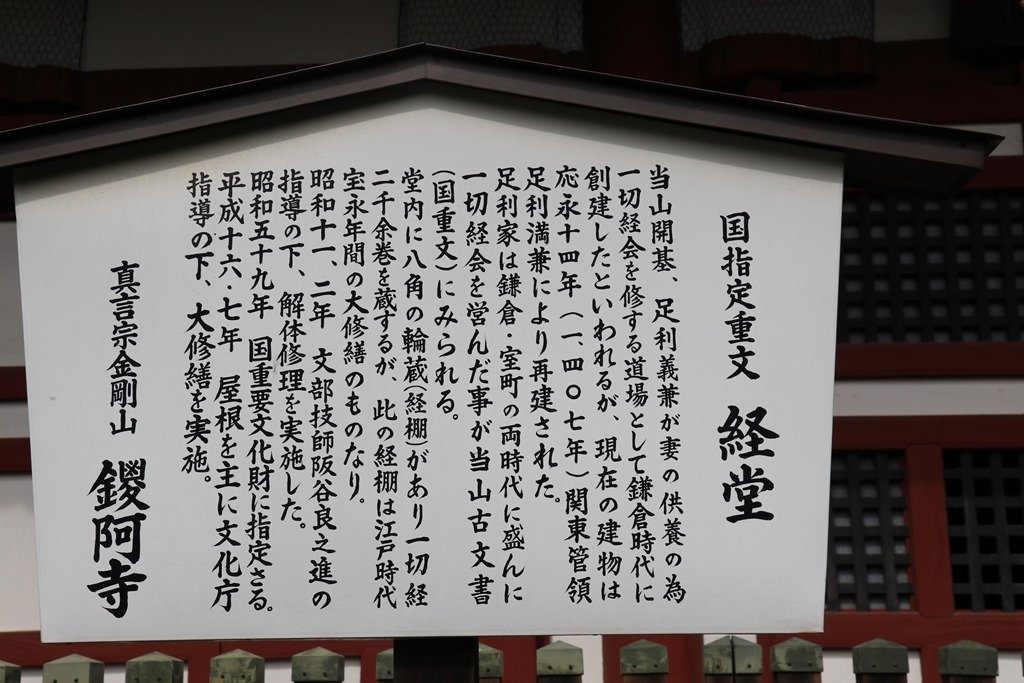 国指定重文 経堂
当山開基、足利義兼が妻の供養の為
一切経会を修する道場として鎌倉時代に
創建したといわれるが、現在の建物は
応永十四年（一、四〇七年）関東管領
足利満兼により再建された。
足利家は鎌倉・室町の両時代に盛んに
一切経会を営んだ事が当山古文書
（国重文）にみられる。
堂内に八角の輪蔵（経棚）があり一切経
二千余巻を蔵するが、此の経棚は江戸時代
宝永年間の大修繕のものなり。
昭和十一、二年 文部技師阪谷良之進の
指導の下、解体修理を実施した。
昭和五十九年 国重要文化財に指定さる。
平成十六・七年 屋根を主に文化庁
指導の下、大修繕を実施。
真言宗金剛山 鑁阿寺